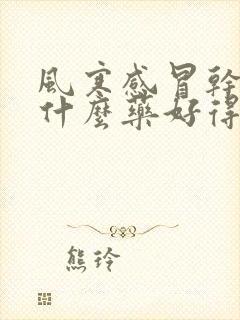 風寒感冒幹
什麼藥好得
熊玲